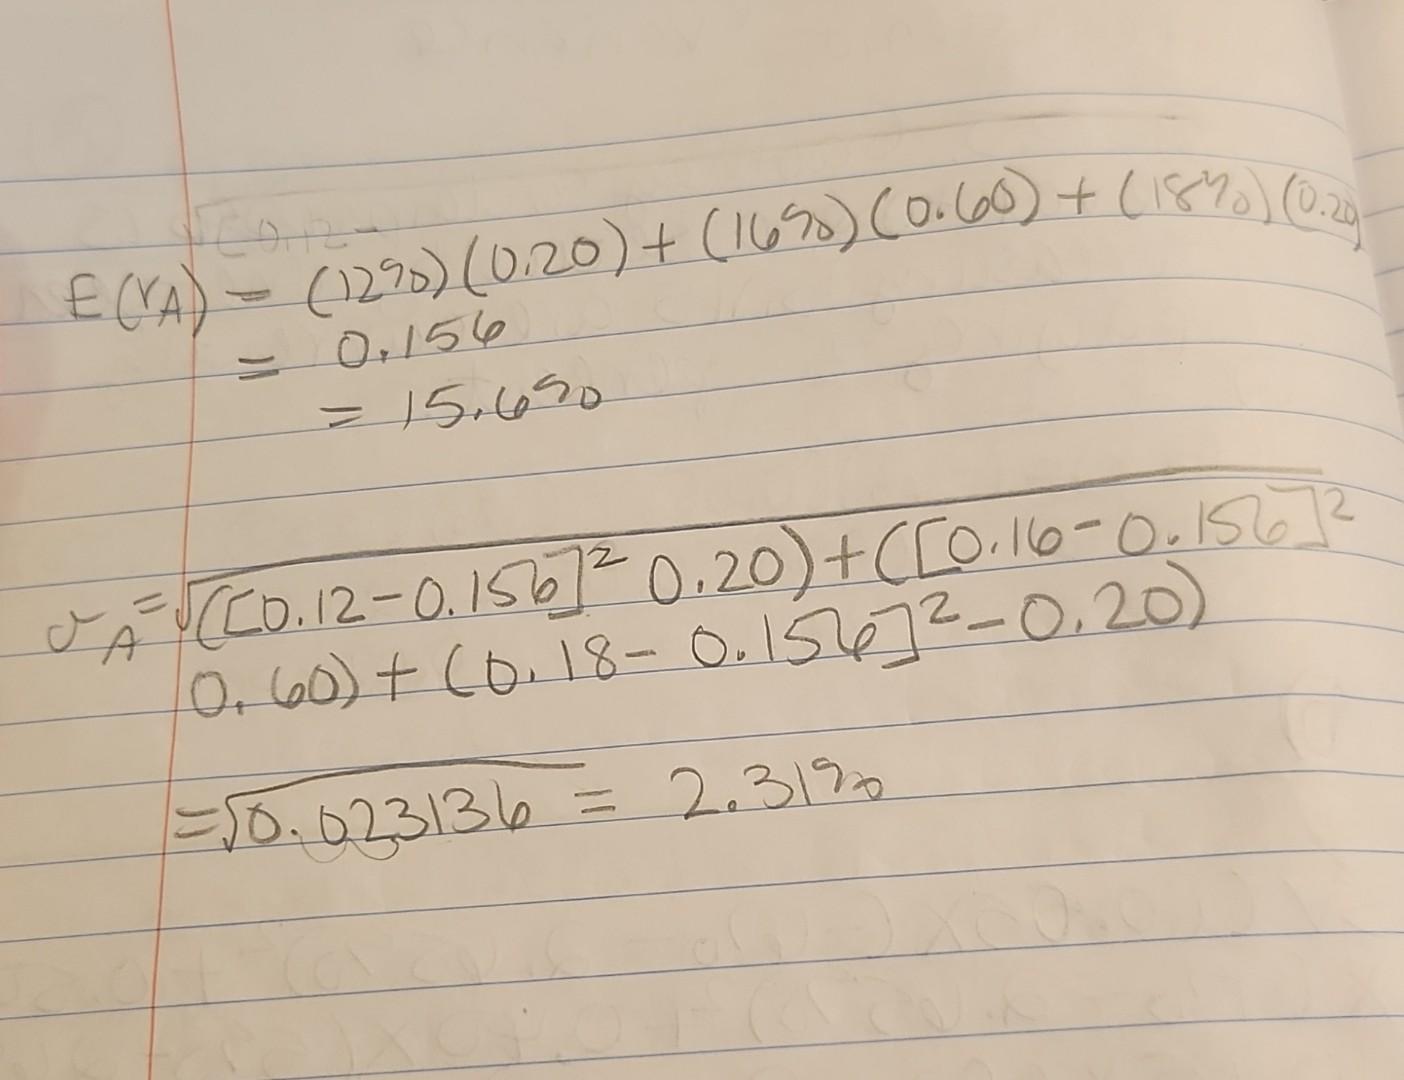 E(rA) = (12%)(0.20) + (16%)(0.60) + (18%)(0.20)
= 0.156
= 15.6%
σA = √([0.12 - 0.156]² 0.20) + ([0.16 - 0.156]²
0.60) + (0.18 - 0.156]² - 0.20)
= √0.023136 = 2.31%